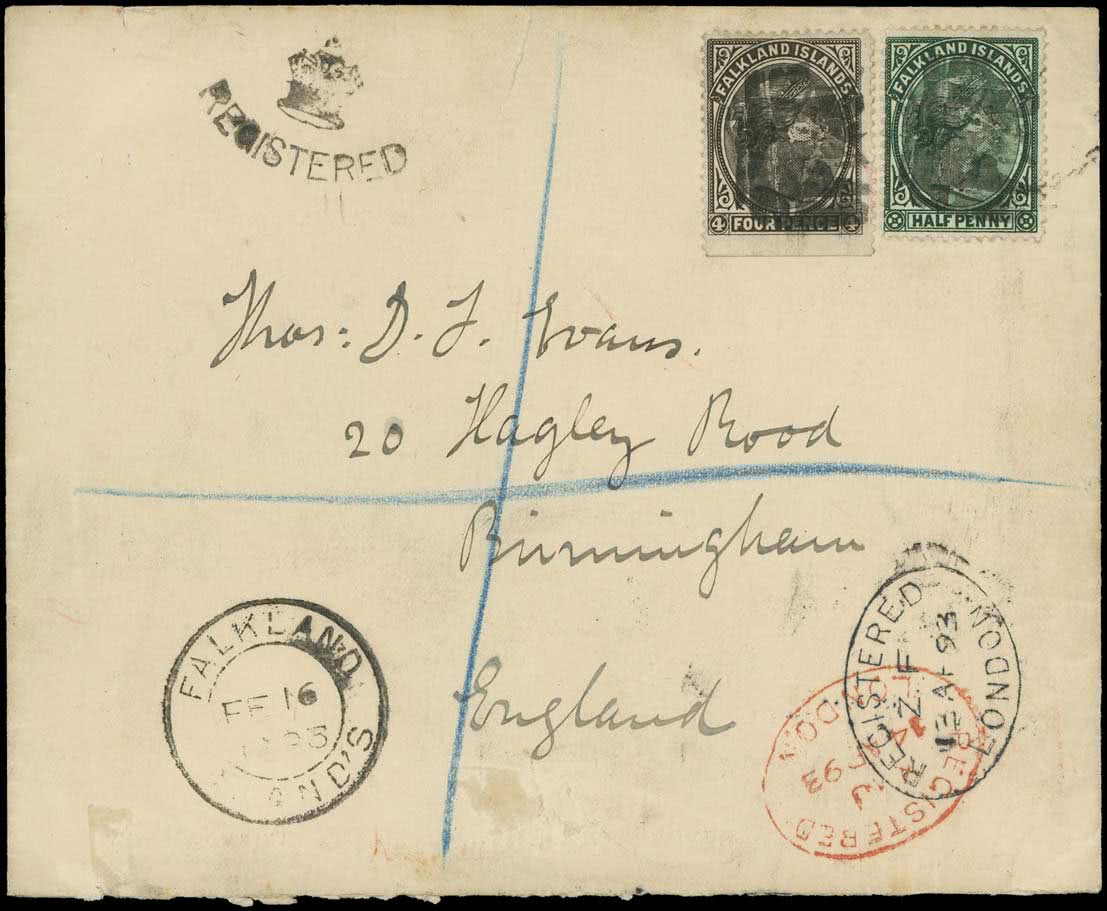 REGISTERED
FALKLAND ISLANDS
4 FOUR PENCE 4
FALKLAND ISLANDS
HALF PENNY
Thos: D. F. Evans.
20 Hagley Road
Birmingham
England
FALKLAND
FE 16
93
REGISTERED
LONDON
AP 93
REGISTERED
93